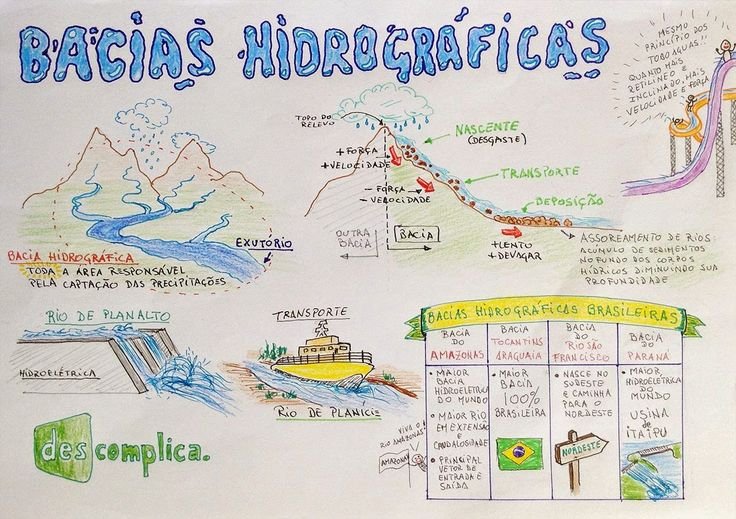 BACIAS HIDROGRÁFICAS
MESMO
PRINCÍPIO DOS
TOBOÁGUAS!!
QUANTO MAIS
RETILÍNEO E
INCLINADO, MAIS
VELOCIDADE E FORÇA
TOPO DO
RELEVO
NASCENTE
(DESGASTE)
+ FORÇA
+ VELOCIDADE
TRANSPORTE
- FORÇA
- VELOCIDADE
DEPOSIÇÃO
OUTRA
BACIA
BACIA
+ LENTO
+ DEVAGAR
ASSOREAMENTO DE RIOS:
ACÚMULO DE SEDIMENTOS
NO FUNDO DOS CORPOS
HÍDRICOS DIMINUINDO SUA
PROFUNDIDADE
EXUTÓRIO
BACIA HIDROGRÁFICA
TODA A ÁREA RESPONSÁVEL
PELA CAPTAÇÃO DAS PRECIPITAÇÕES
RIO DE PLANALTO
HIDROELÉTRICA
TRANSPORTE
RIO DE PLANÍCIE
BACIAS HIDROGRÁFICAS BRASILEIRAS
BACIA
DO
AMAZONAS
• MAIOR
BACIA
HIDROELÉTRICA
DO MUNDO
• MAIOR RIO
EM EXTENSÃO
E
CAUDALOSIDADE
• PRINCIPAL
VETOR DE
ENTRADA E
SAÍDA
BACIA
TOCANTINS
ARAGUAIA
• MAIOR
BACIA
100%
BRASILEIRA
BACIA
DO
RIO SÃO
FRANCISCO
• NASCE NO
SUDESTE
E CAMINHA
PARA O
NORDESTE
NORDESTE
BACIA
DO
PARANÁ
• MAIOR
HIDROELÉTRICA
DO
MUNDO
USINA
de
ITAIPU
VIVA O
RIO AMAZONAS
AMAZONAS
descomplica.